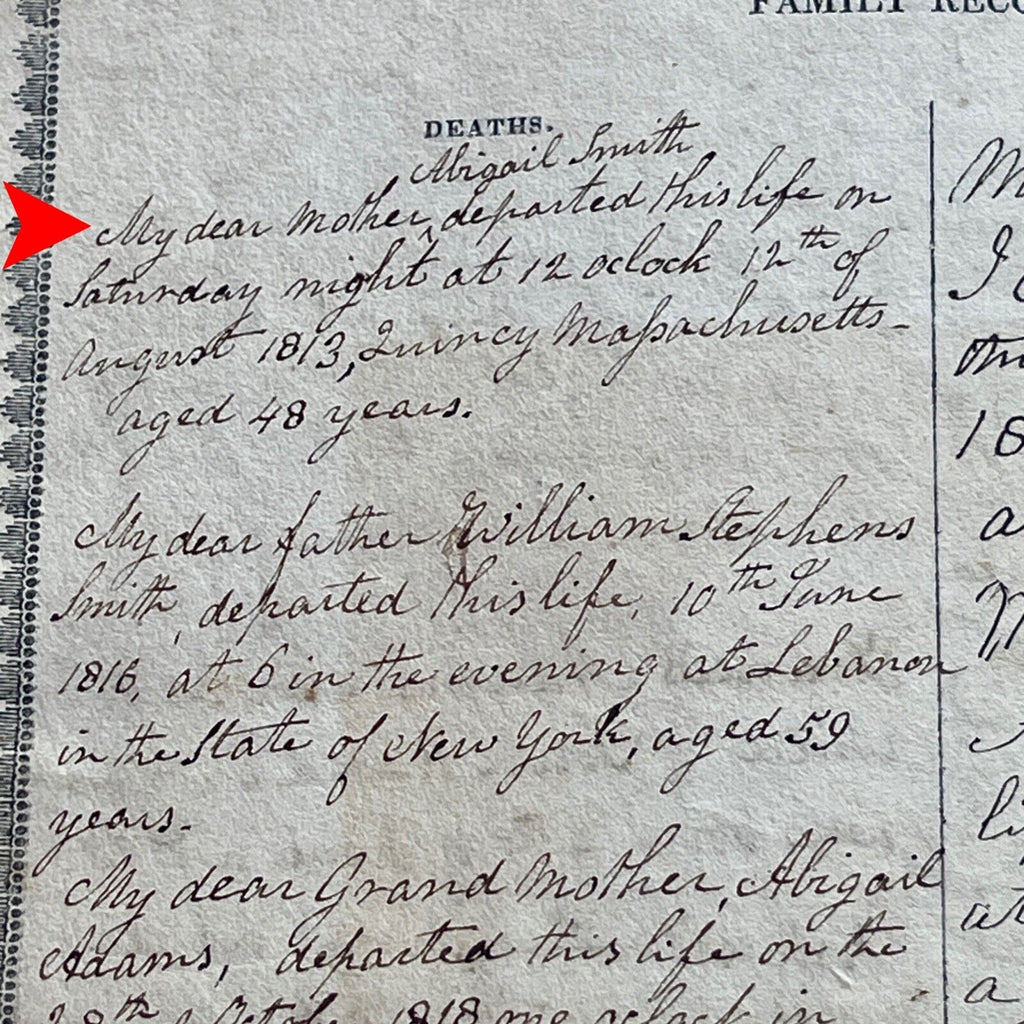 FAMILY RECO
DEATHS.
Abigail Smith
My dear Mother, departed this life on
Saturday night at 12 oclock 12th of
August 1813, Quincy Massachusetts-
aged 48 years.
My dear father William Stephens
Smith, departed this life, 10th June
1816, at 6 in the evening at Lebanon
in the State of New York, aged 59
years-
My dear Grand Mother, Abigail
Adams, departed this life on the
28th of October 1818 one oclock in
M
I
on
18
a
li
at
a